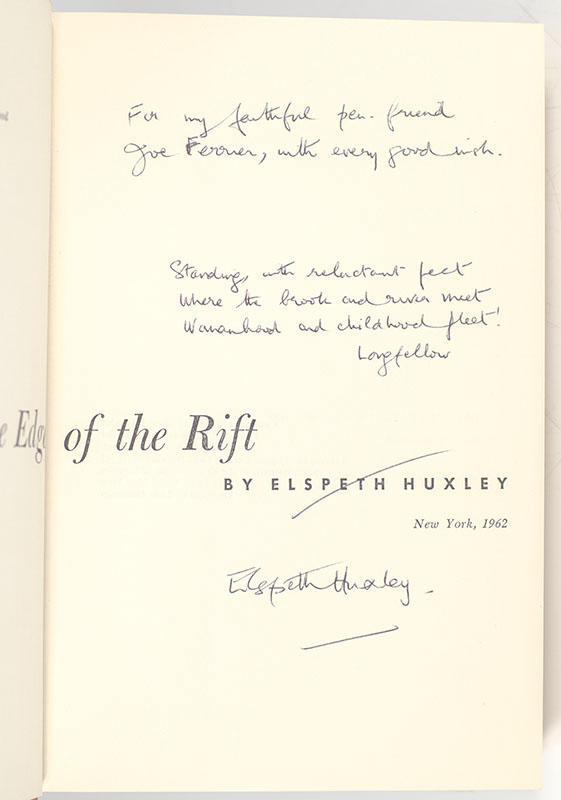 For my faithful pen-friend
Joe Ferrier, with every good wish.
Standing, with reluctant feet
Where the brook and river meet
Womanhood and childhood fleet!
Longfellow
e Edge of the Rift
BY ELSPETH HUXLEY
New York, 1962
Elspeth Huxley